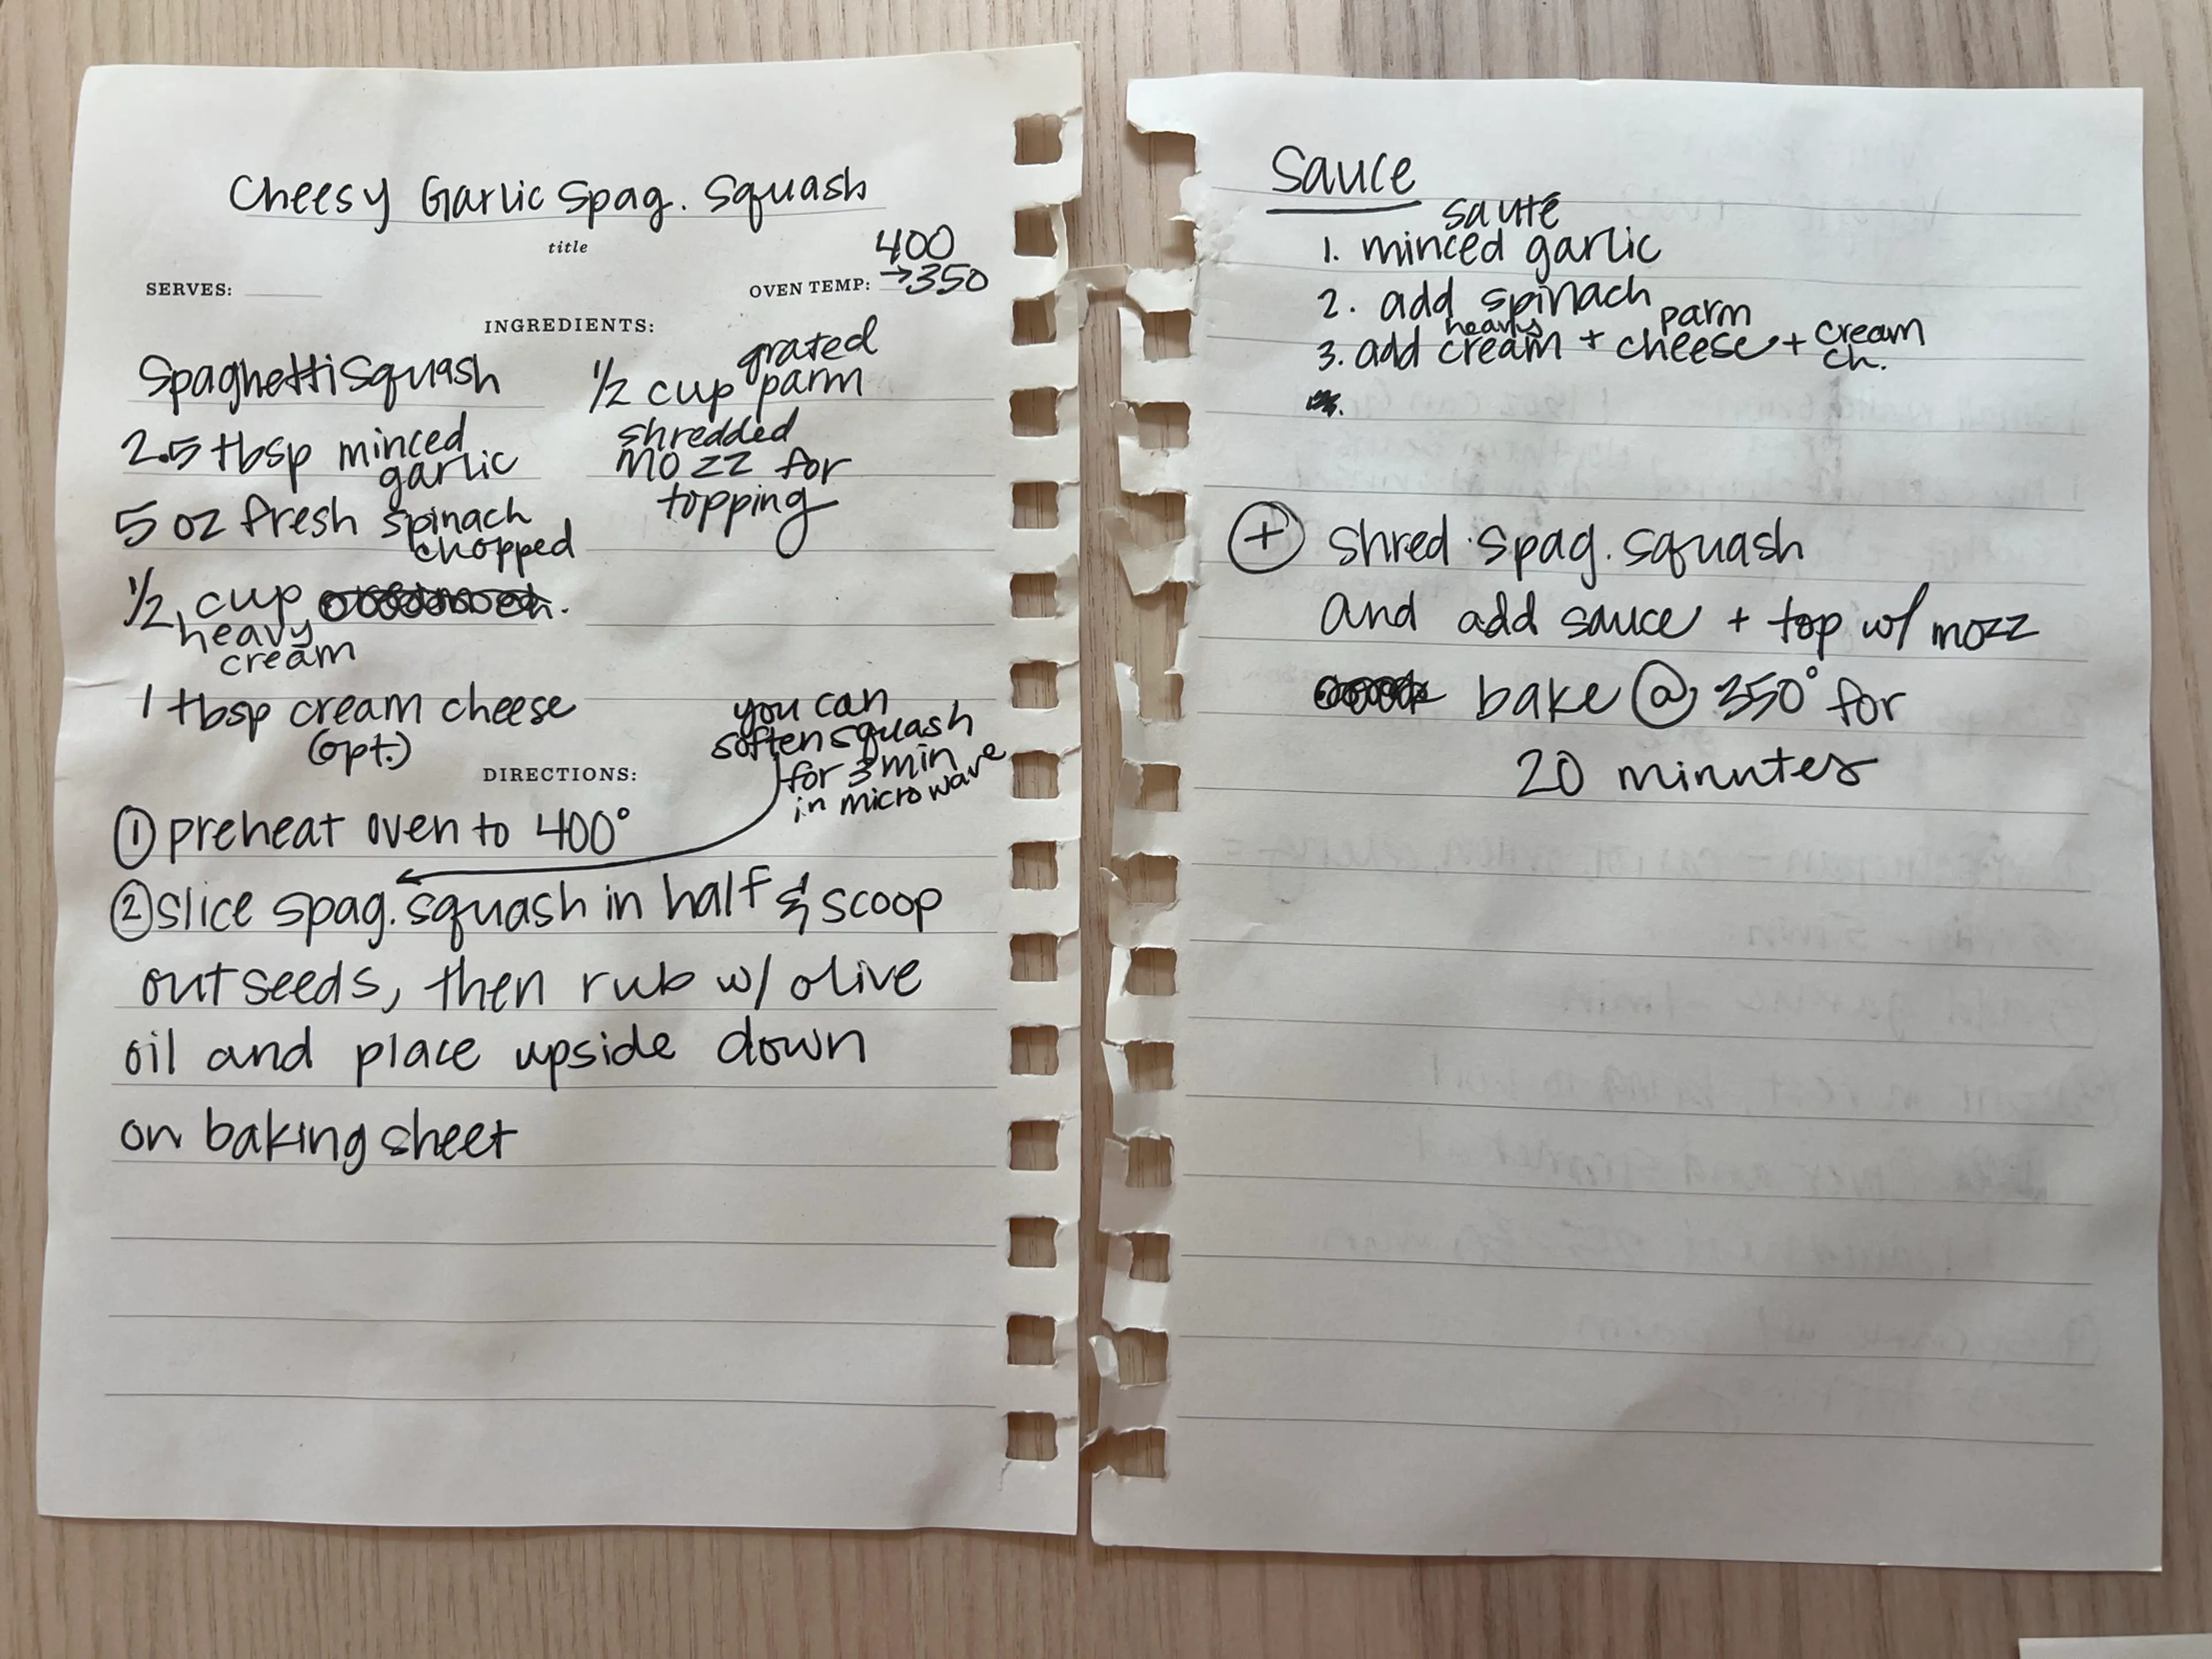 Cheesy Garlic Spag. Squash
title
SERVES:
OVEN TEMP: 400
→350
INGREDIENTS:
Spaghetti Squash
2.5 tbsp minced
garlic
5 oz fresh spinach
chopped
1/2 cup
heavy
cream
1 tbsp cream cheese
(opt.)
1/2 cup grated
parm
shredded
mozz for
topping
you can
soften squash
for 3 min
in microwave
DIRECTIONS:
① preheat oven to 400°
② slice spag. squash in half & scoop
out seeds, then rub w/ olive
oil and place upside down
on baking sheet
Sauce
sauté
1. minced garlic
2. add spinach
3. add heavy cream + parm cheese + cream
ch.
⊕ shred spag. squash
and add sauce + top w/ mozz
bake @ 350° for
20 minutes